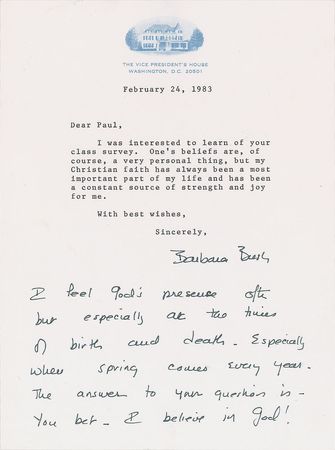 THE VICE PRESIDENT'S HOUSE
WASHINGTON, D.C. 20501
February 24, 1983
Dear Paul,
I was interested to learn of your
class survey. One's beliefs are, of
course, a very personal thing, but my
Christian faith has always been a most
important part of my life and has been
a constant source of strength and joy
for me.
With best wishes,
Sincerely,
Barbara Bush
I feel God's presence often
but especially at the times
of birth and death - Especially
when spring comes every year.
The answer to your question is -
You bet - I believe in God!